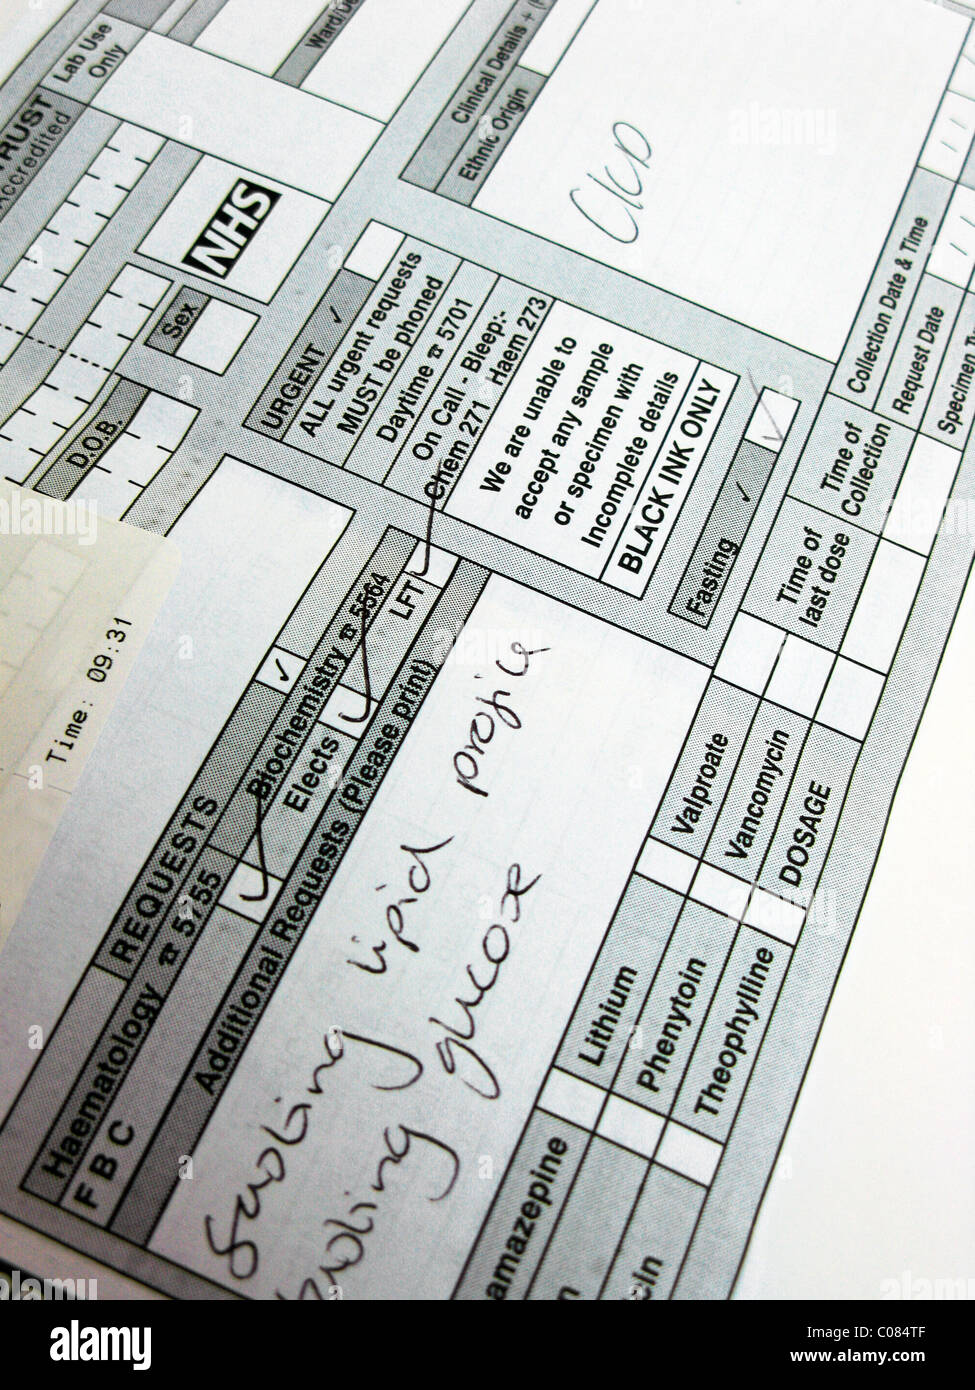 TRUST
Accredited
Lab Use
Only
NHS
Sex
D.O.B.
Clinical Details +
Ethnic Origin
CKD
URGENT ✓
ALL urgent requests
MUST be phoned
Daytime ☎ 5701
On Call - Bleep:-
Chem 271 - Haem 273
We are unable to
accept any sample
or specimen with
Incomplete details
BLACK INK ONLY
Fasting ✓
Collection Date & Time
Request Date
Time of
Collection
Time of
last dose
Time: 09:31
REQUESTS ✓
Haematology ☎ 5755
Biochemistry ☎ 5564
FBC
Elects
LFT
Additional Requests (Please print)
lipid profile
glucose
Lithium
Valproate
Phenytoin
Vancomycin
Theophylline
DOSAGE
alamy
Image ID: C084TF
www.alamy.com